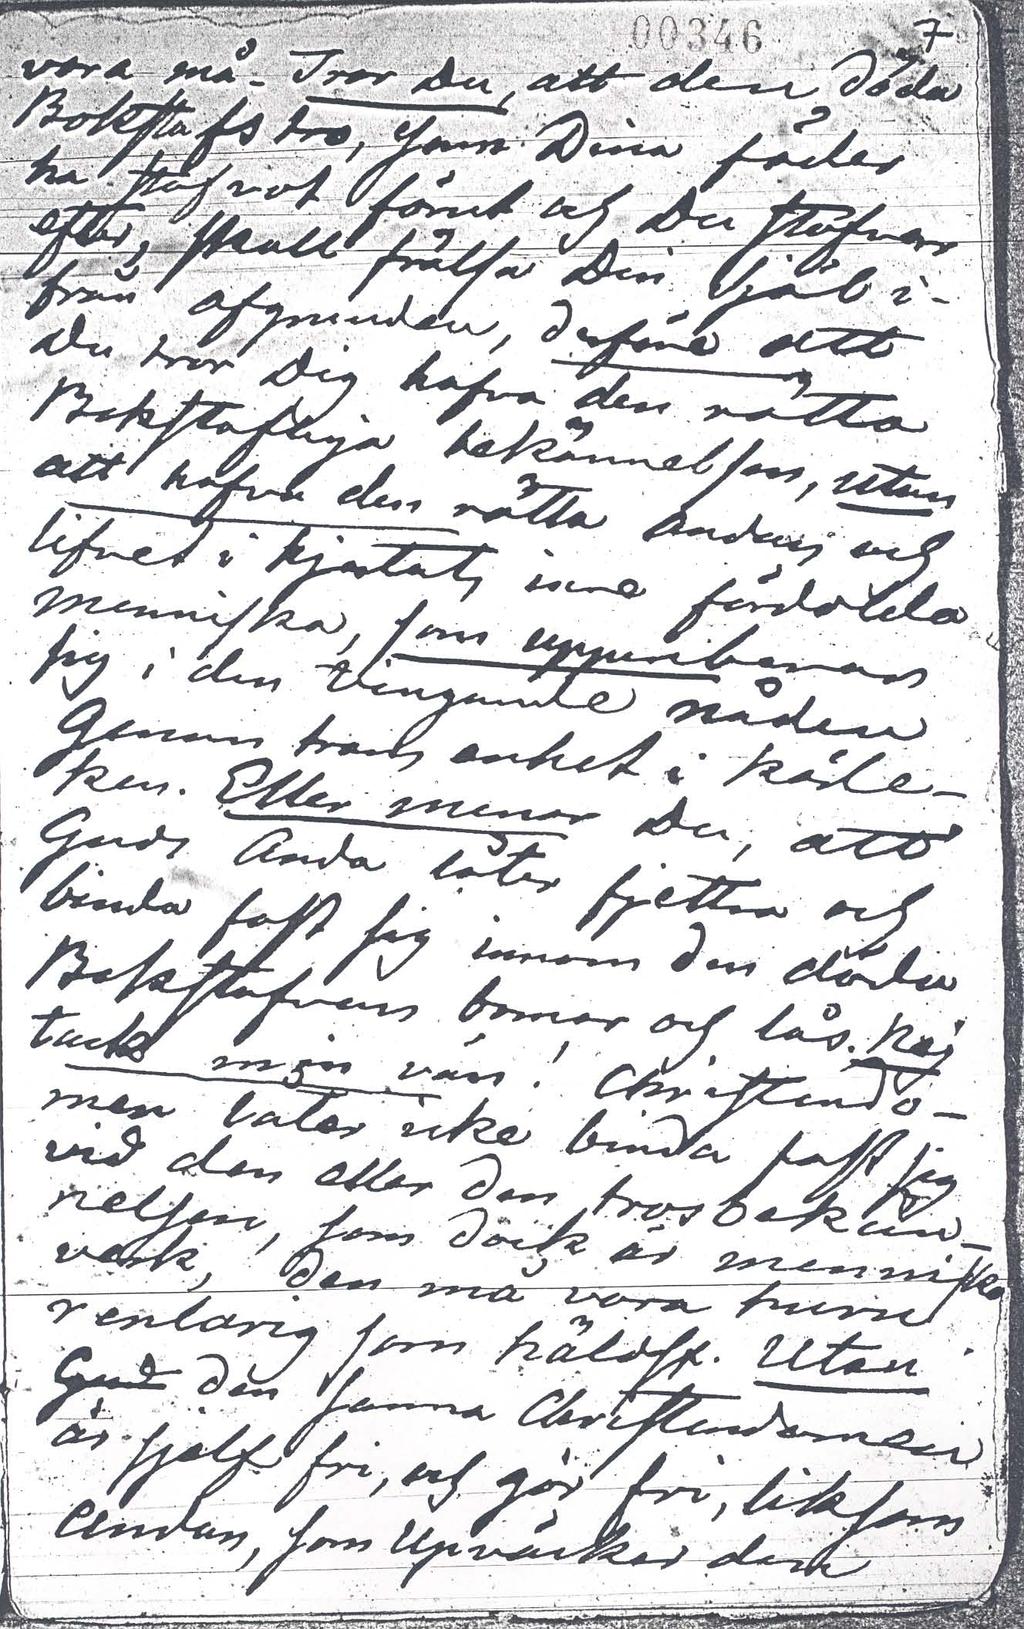 00346 7
vara må. Tror Du, att den döda
Bokstafs tro, som Dina fäder
ha stafvat förut och Du stafvar
efter, skall frälsa Din själ i-
från afgrunden, derföre att
Du tror Dig hafva den rätta
Bokstafliga bekännelsen, utan
att hafva den rätta andans och
lifvet i hjertats inre fördolda
menniska, som uppenbarar
sig i den tvingande nåden
Genom trons enhet i kärle-
ken. Eller menar Du, att
Guds Anda låter fjettra och
binda fast sig innom den döda
Bokstafvens bomar och lås. Nej
tack min vän! Christendo-
men låter icke binda fast sig
vid den eller den trosbekän-
nelsen, som dock är mennisko
verk, den må vara huru
renlärig som hälsst. Utan
Gud den sanna Christendomen
är sjelf fri, och gör fri, liksom
Andan, som Upväcker dem